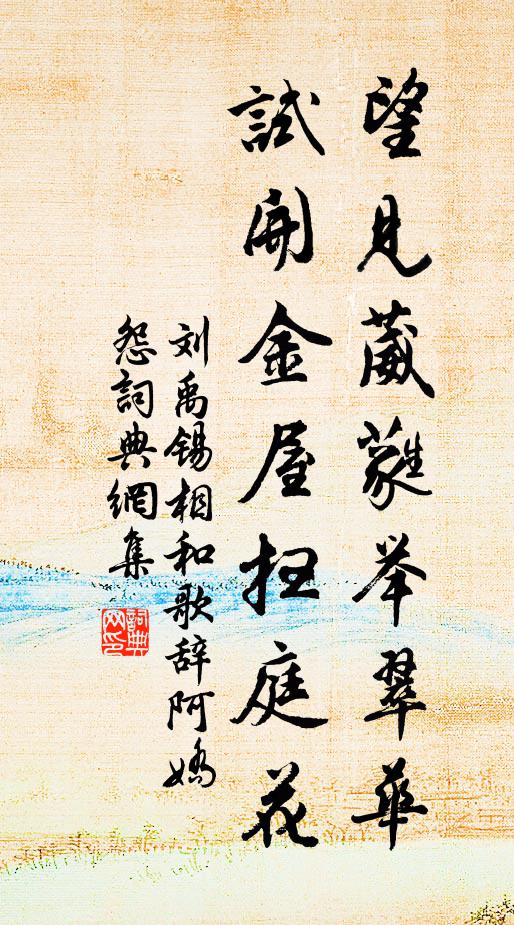 望见葳蕤举翠华
試開金屋扫庭花
刘禹锡相和歌辞阿嬌
怨詞典網集
詞典网印